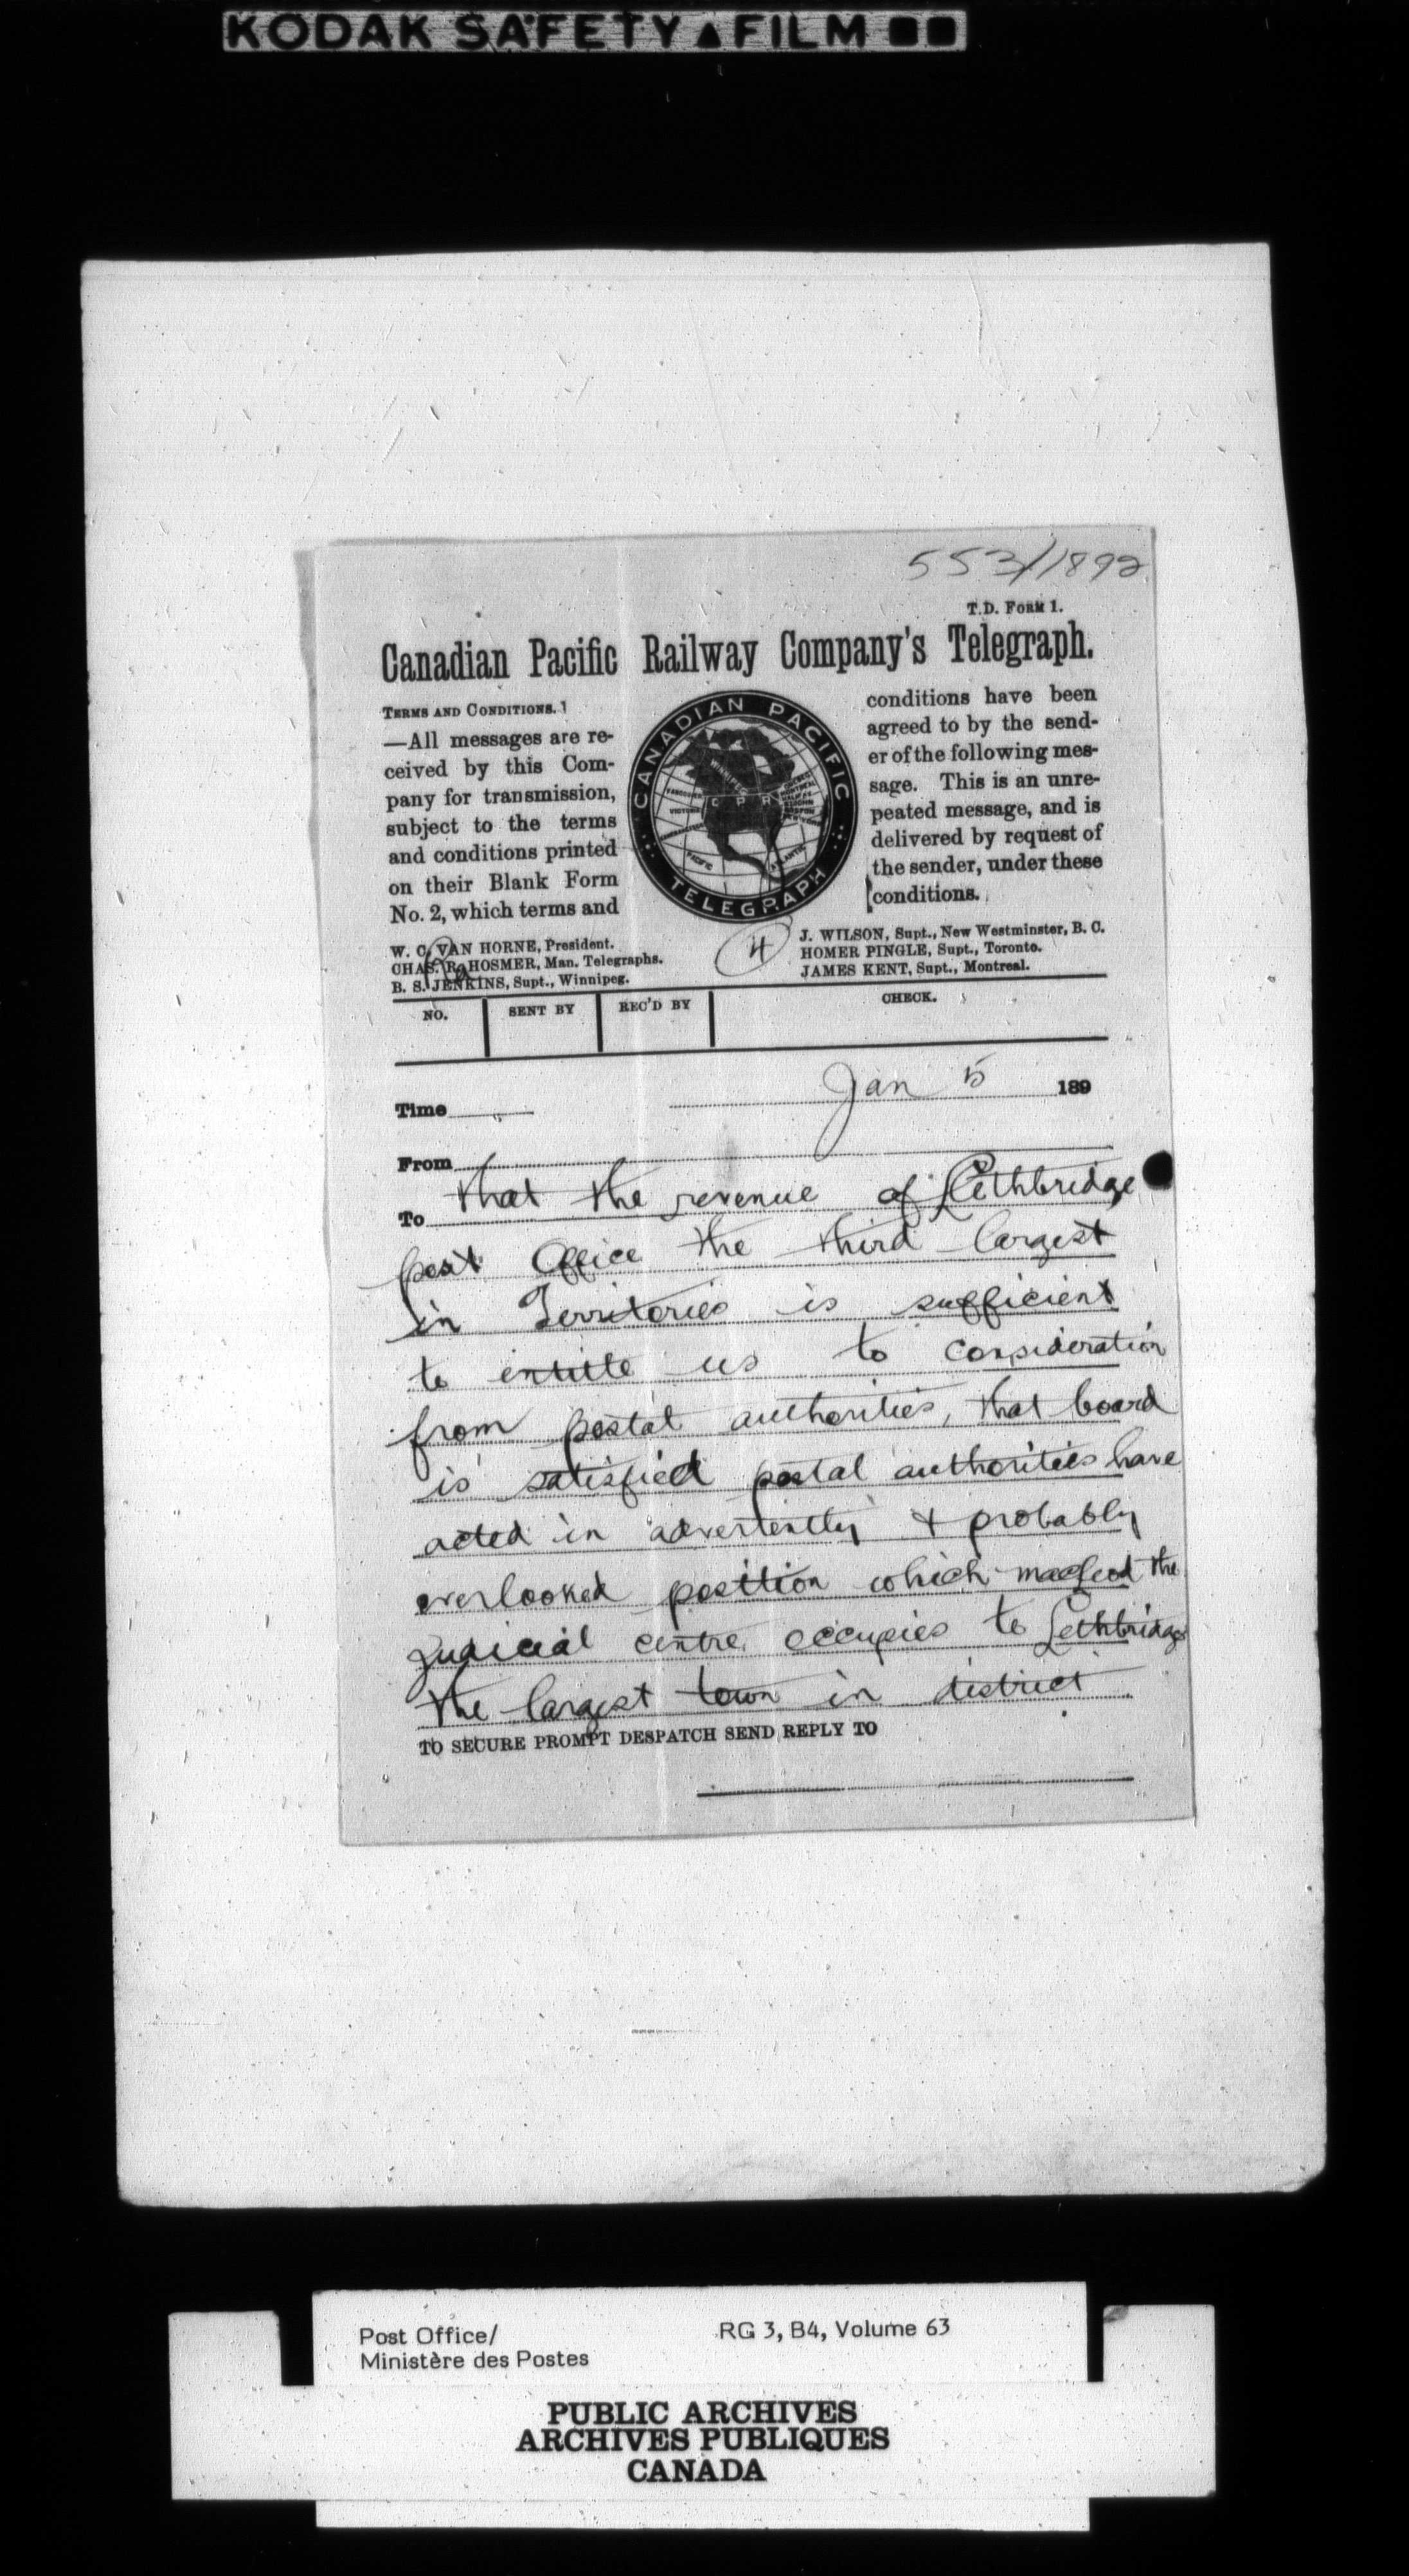 KODAK SAFETY▲FILM ■■
553/1892
T.D. FORM 1.
Canadian Pacific Railway Company's Telegraph.
TERMS AND CONDITIONS.
—All messages are re-
ceived by this Com-
pany for transmission,
subject to the terms
and conditions printed
on their Blank Form
No. 2, which terms and
CANADIAN PACIFIC
TELEGRAPH
WINNIPEG
VANCOUVER
VICTORIA
C P R
MONTREAL
BOSTON
NEW YORK
PACIFIC
ATLANTIC
conditions have been
agreed to by the send-
er of the following mes-
sage. This is an unre-
peated message, and is
delivered by request of
the sender, under these
conditions.
W. C. VAN HORNE, President.
CHAS. R. HOSMER, Man. Telegraphs.
B. S. JENKINS, Supt., Winnipeg.
4
J. WILSON, Supt., New Westminster, B. C.
HOMER PINGLE, Supt., Toronto.
JAMES KENT, Supt., Montreal.
NO. SENT BY REC'D BY CHECK.
Time Jan 5 189
From
To that the revenue of Lethbridge
post Office the third largest
in Territories is sufficient
to entitle us to consideration
from postal authorities, that board
is satisfied postal authorities have
acted in advertently & probably
overlooked position which macleod the
judicial centre occupies to Lethbridge
the largest town in district
TO SECURE PROMPT DESPATCH SEND REPLY TO
Post Office/ RG 3, B4, Volume 63
Ministère des Postes
PUBLIC ARCHIVES
ARCHIVES PUBLIQUES
CANADA